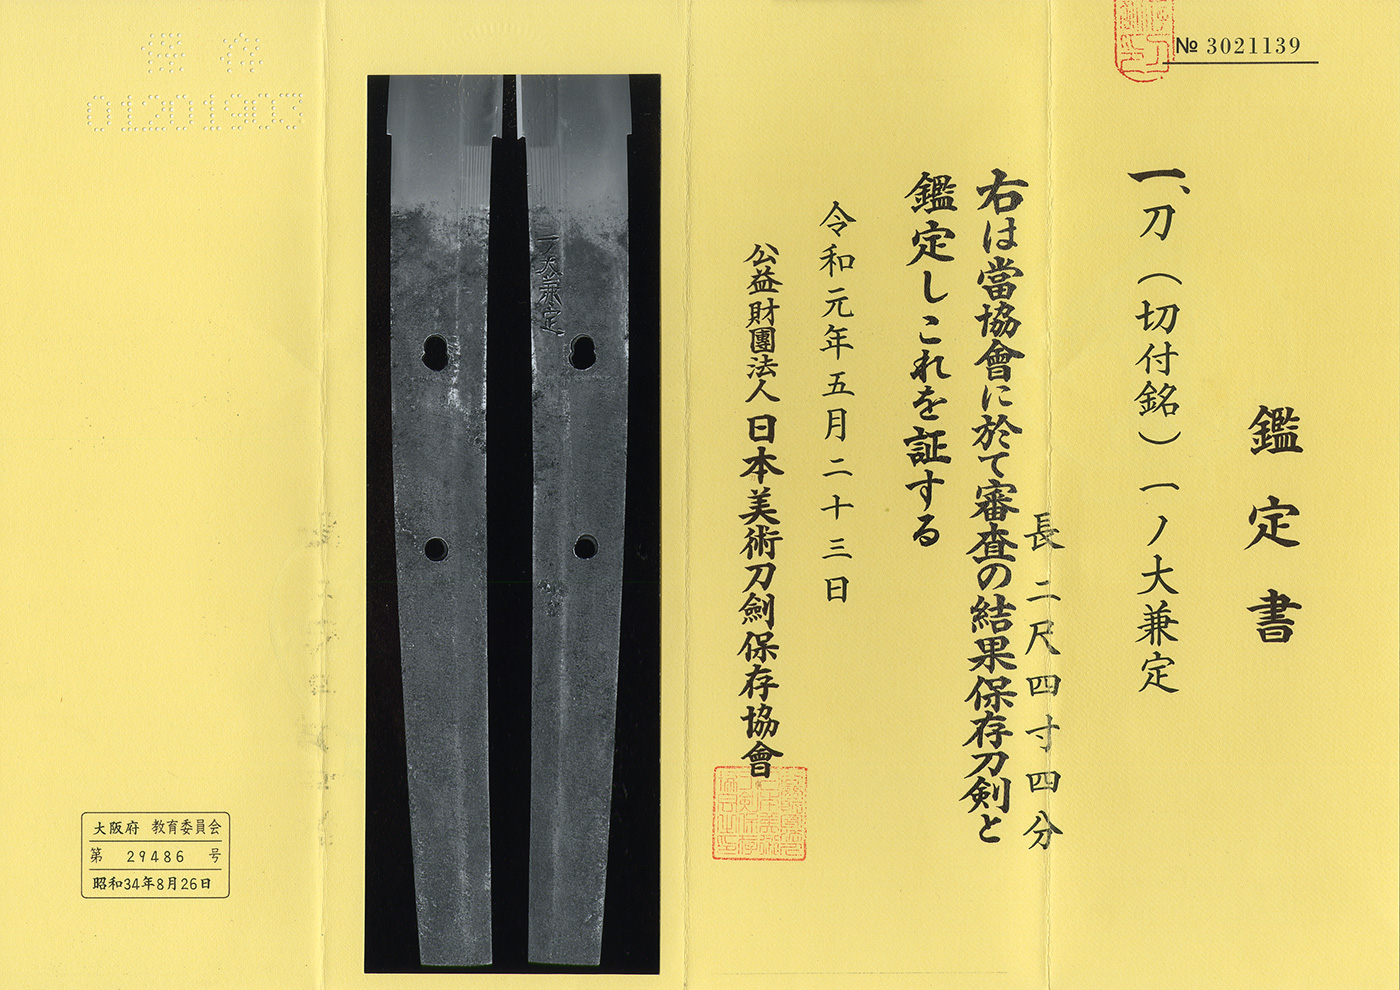 № 3021139
鑑定書
一、刀（切付銘）一ノ大兼定
長二尺四寸四分
右は當協會に於て審査の結果保存刀剣と
鑑定しこれを証する
令和元年五月二十三日
公益財團法人日本美術刀劍保存協會
一ノ大兼定
保存
01201903
大阪府 教育委員会
第 29486 号
昭和34年8月26日